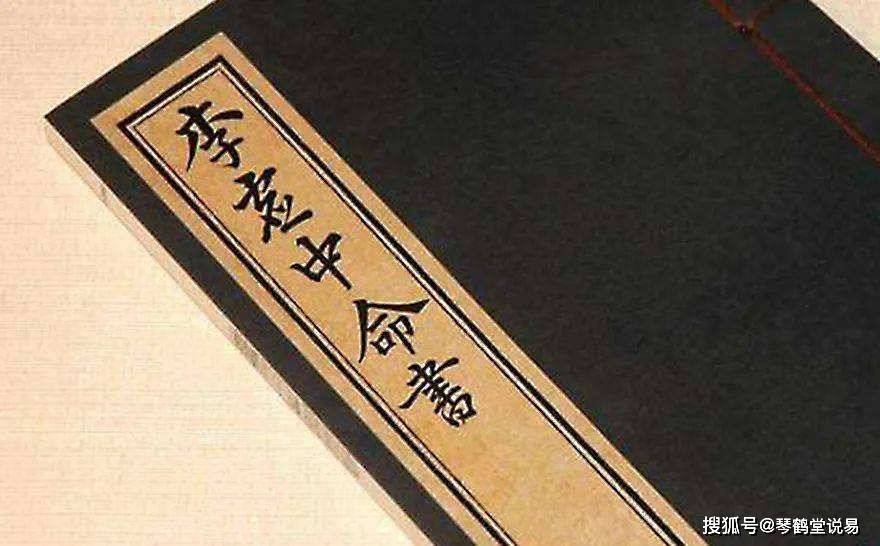 李虛中命書
搜狐号@琴鹤堂说易